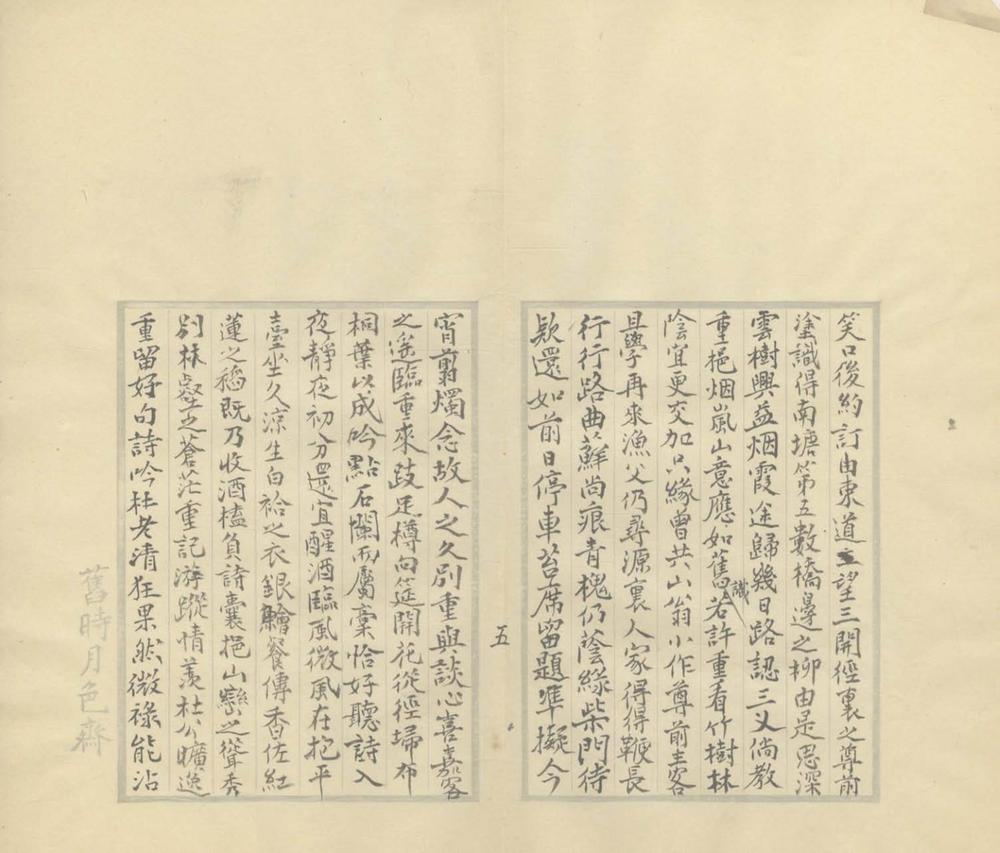 笑口後約訂由東道之望三開徑裏之尊前
塗識得南塘第五數橋邊之柳由是思深
雲樹興益烟霞途歸幾日路認三义倘教
重挹烟嵐山意應如舊識若許重看竹樹林
陰宜更交加只緣曾共山翁小作尊前主客
且學再來漁父仍尋源裏人家得得鞭長
行行路曲蘚尚痕青槐仍蔭緣柴門待
欵還如前日停車苔席留題準擬今
五
宵翦燭念故人之久別重與談心喜嘉客
之遙臨重來跂足樽向筵開花從徑埽布
桐葉以成吟點石闌而屬稾恰好聽詩入
夜靜夜初分還宜醒酒臨風微風在抱平
臺坐久涼生白袷之衣銀鱠餐傳香佐紅
蓮之稻既乃收酒榼負詩囊挹山巒之聳秀
別林壑之蒼茫重記游蹤情羨杜公曠逸
重留好句詩吟杜老清狂果然微祿能沾
舊時月色齋